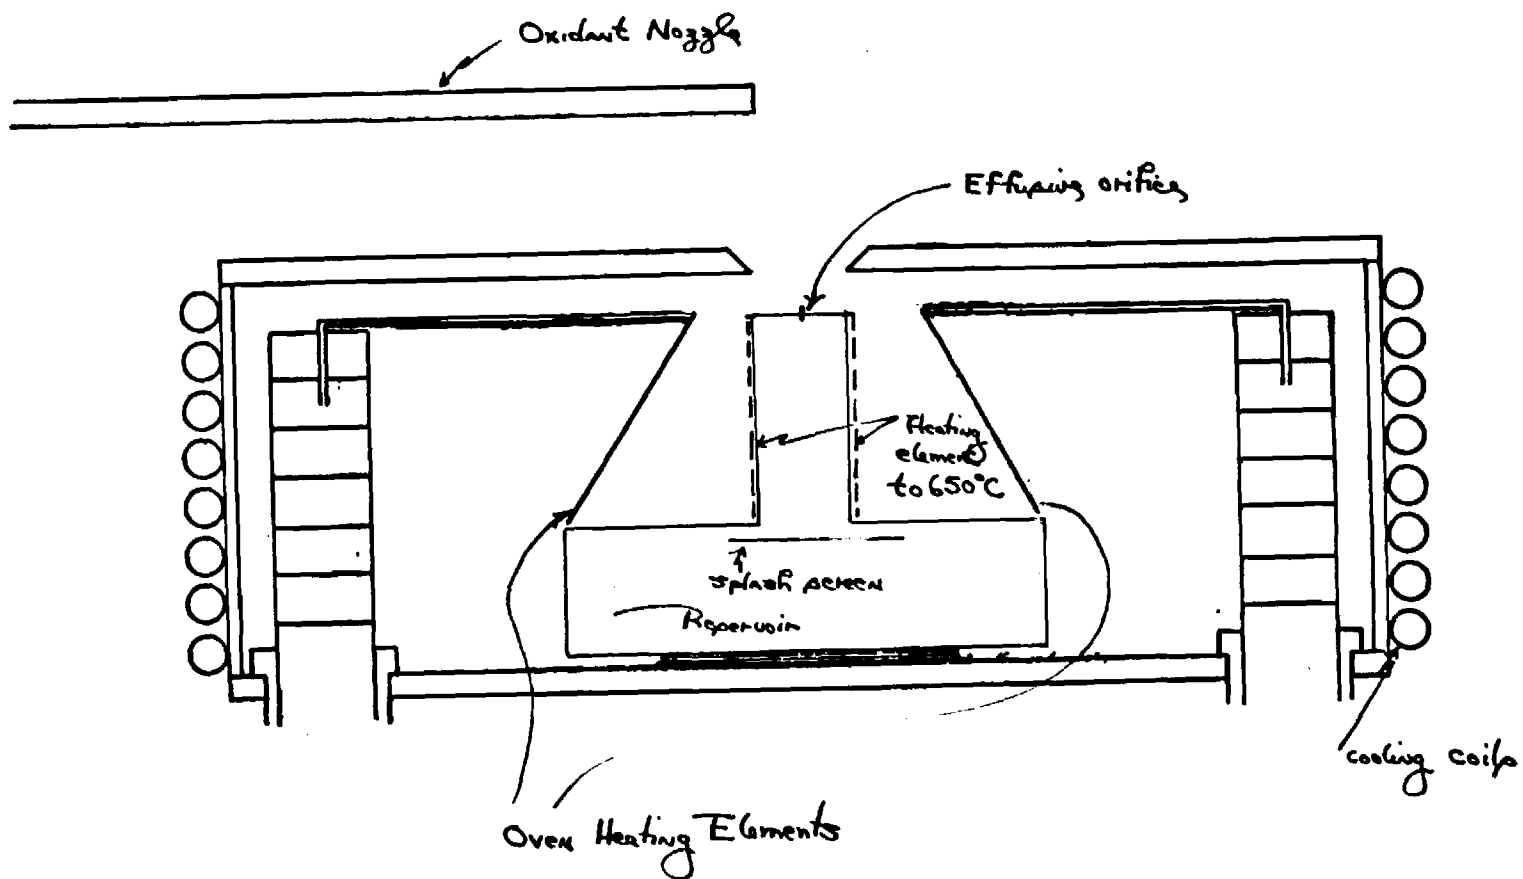 Oxidant Nozzle
Effusing orifice
Heating
element
to 650°C
splash screen
Reservoir
cooling coils
Oven Heating Elements